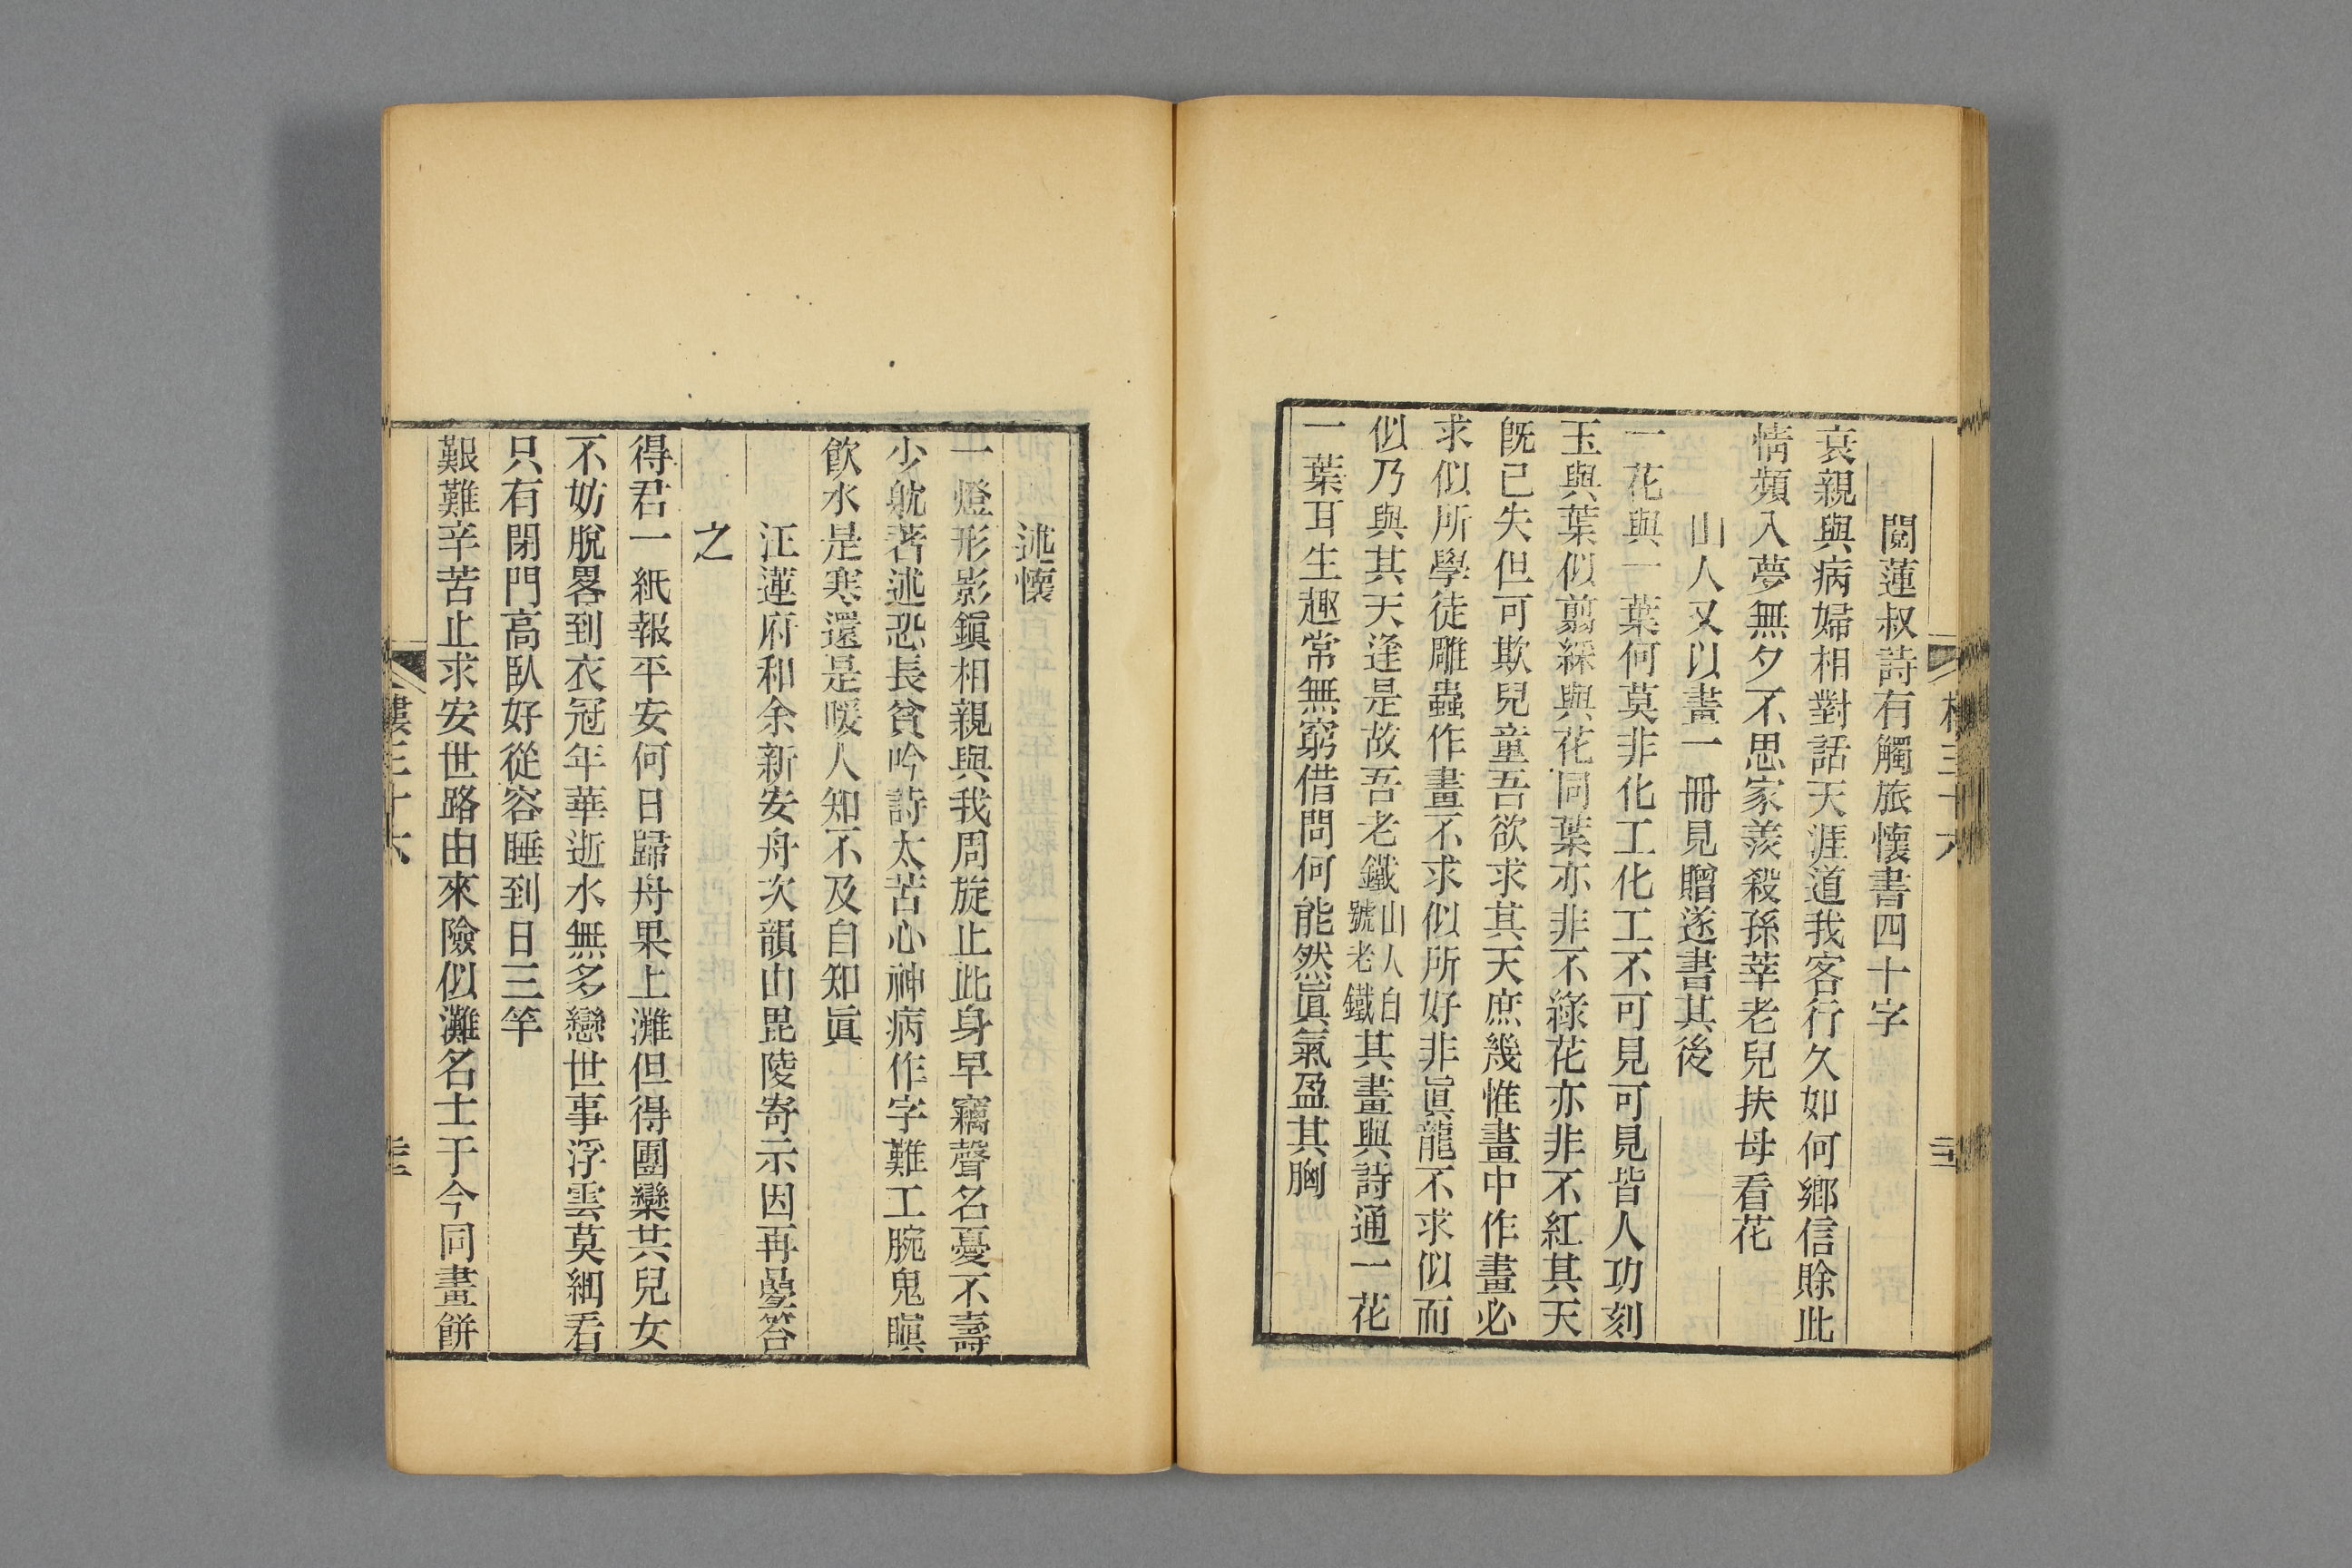 閱蓮叔詩有觸旅懷書四十字
哀親與病婦相對話天涯道我客行久如何鄉信賒此
情頻入夢無夕不思家羨殺孫莘老兒扶母看花
山人又以畫一冊見贈遂書其後
一花與一葉何莫非化工化工不可見可見皆人功刻
玉與葉似翦綵與花同葉亦非不綠花亦非不紅其天
旣已失但可欺兒童吾欲求其天庶幾惟畫中作畫必
求似所學徒雕蟲作畫不求似所好非眞龍不求似而
似乃與其天逢是故吾老鐵山人自號老鐵其畫與詩通一花
一葉耳生趣常無窮借問何能然眞氣盈其胸
述懷
一燈形影鎭相親與我周旋止此身早竊聲名憂不壽
少躭著述恐長貧吟詩太苦心神病作字難工腕鬼瞋
飮水是寒還是暖人知不及自知眞
汪蓮府和余新安舟次韻由毘陵寄示因再疊答
之
得君一紙報平安何日歸舟果上灘但得團欒共兒女
不妨脫畧到衣冠年華逝水無多戀世事浮雲莫細看
只有閉門高臥好從容睡到日三竿
艱難辛苦止求安世路由來險似灘名士于今同畫餅